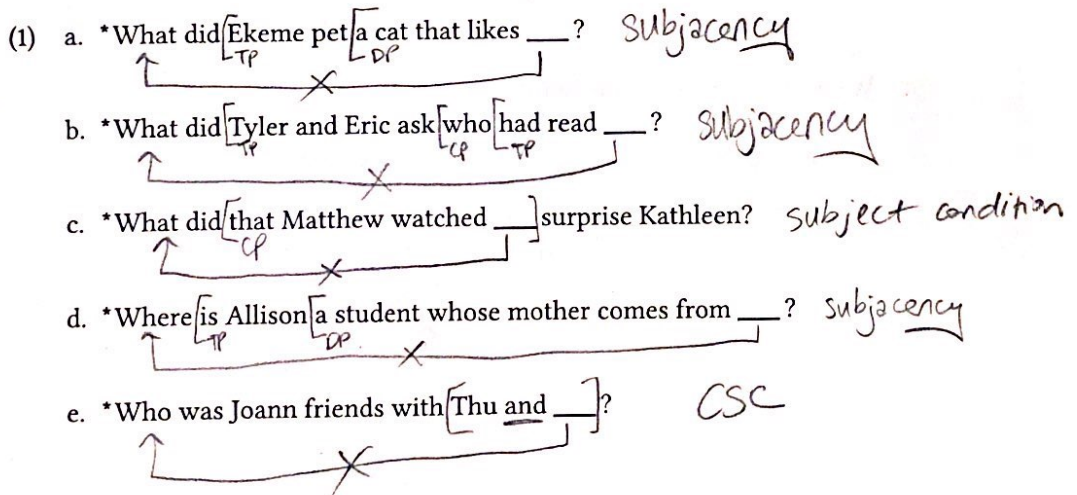 (1) a. *What did [Ekeme pet [a cat that likes ___? subjacency
TP DP
b. *What did [Tyler and Eric ask [who [had read ___? subjacency
TP CP TP
c. *What did [that Matthew watched ___] surprise Kathleen? subject condition
CP
d. *Where [is Allison [a student whose mother comes from ___? subjacency
TP DP
e. *Who was Joann friends with [Thu and ___]? CSC